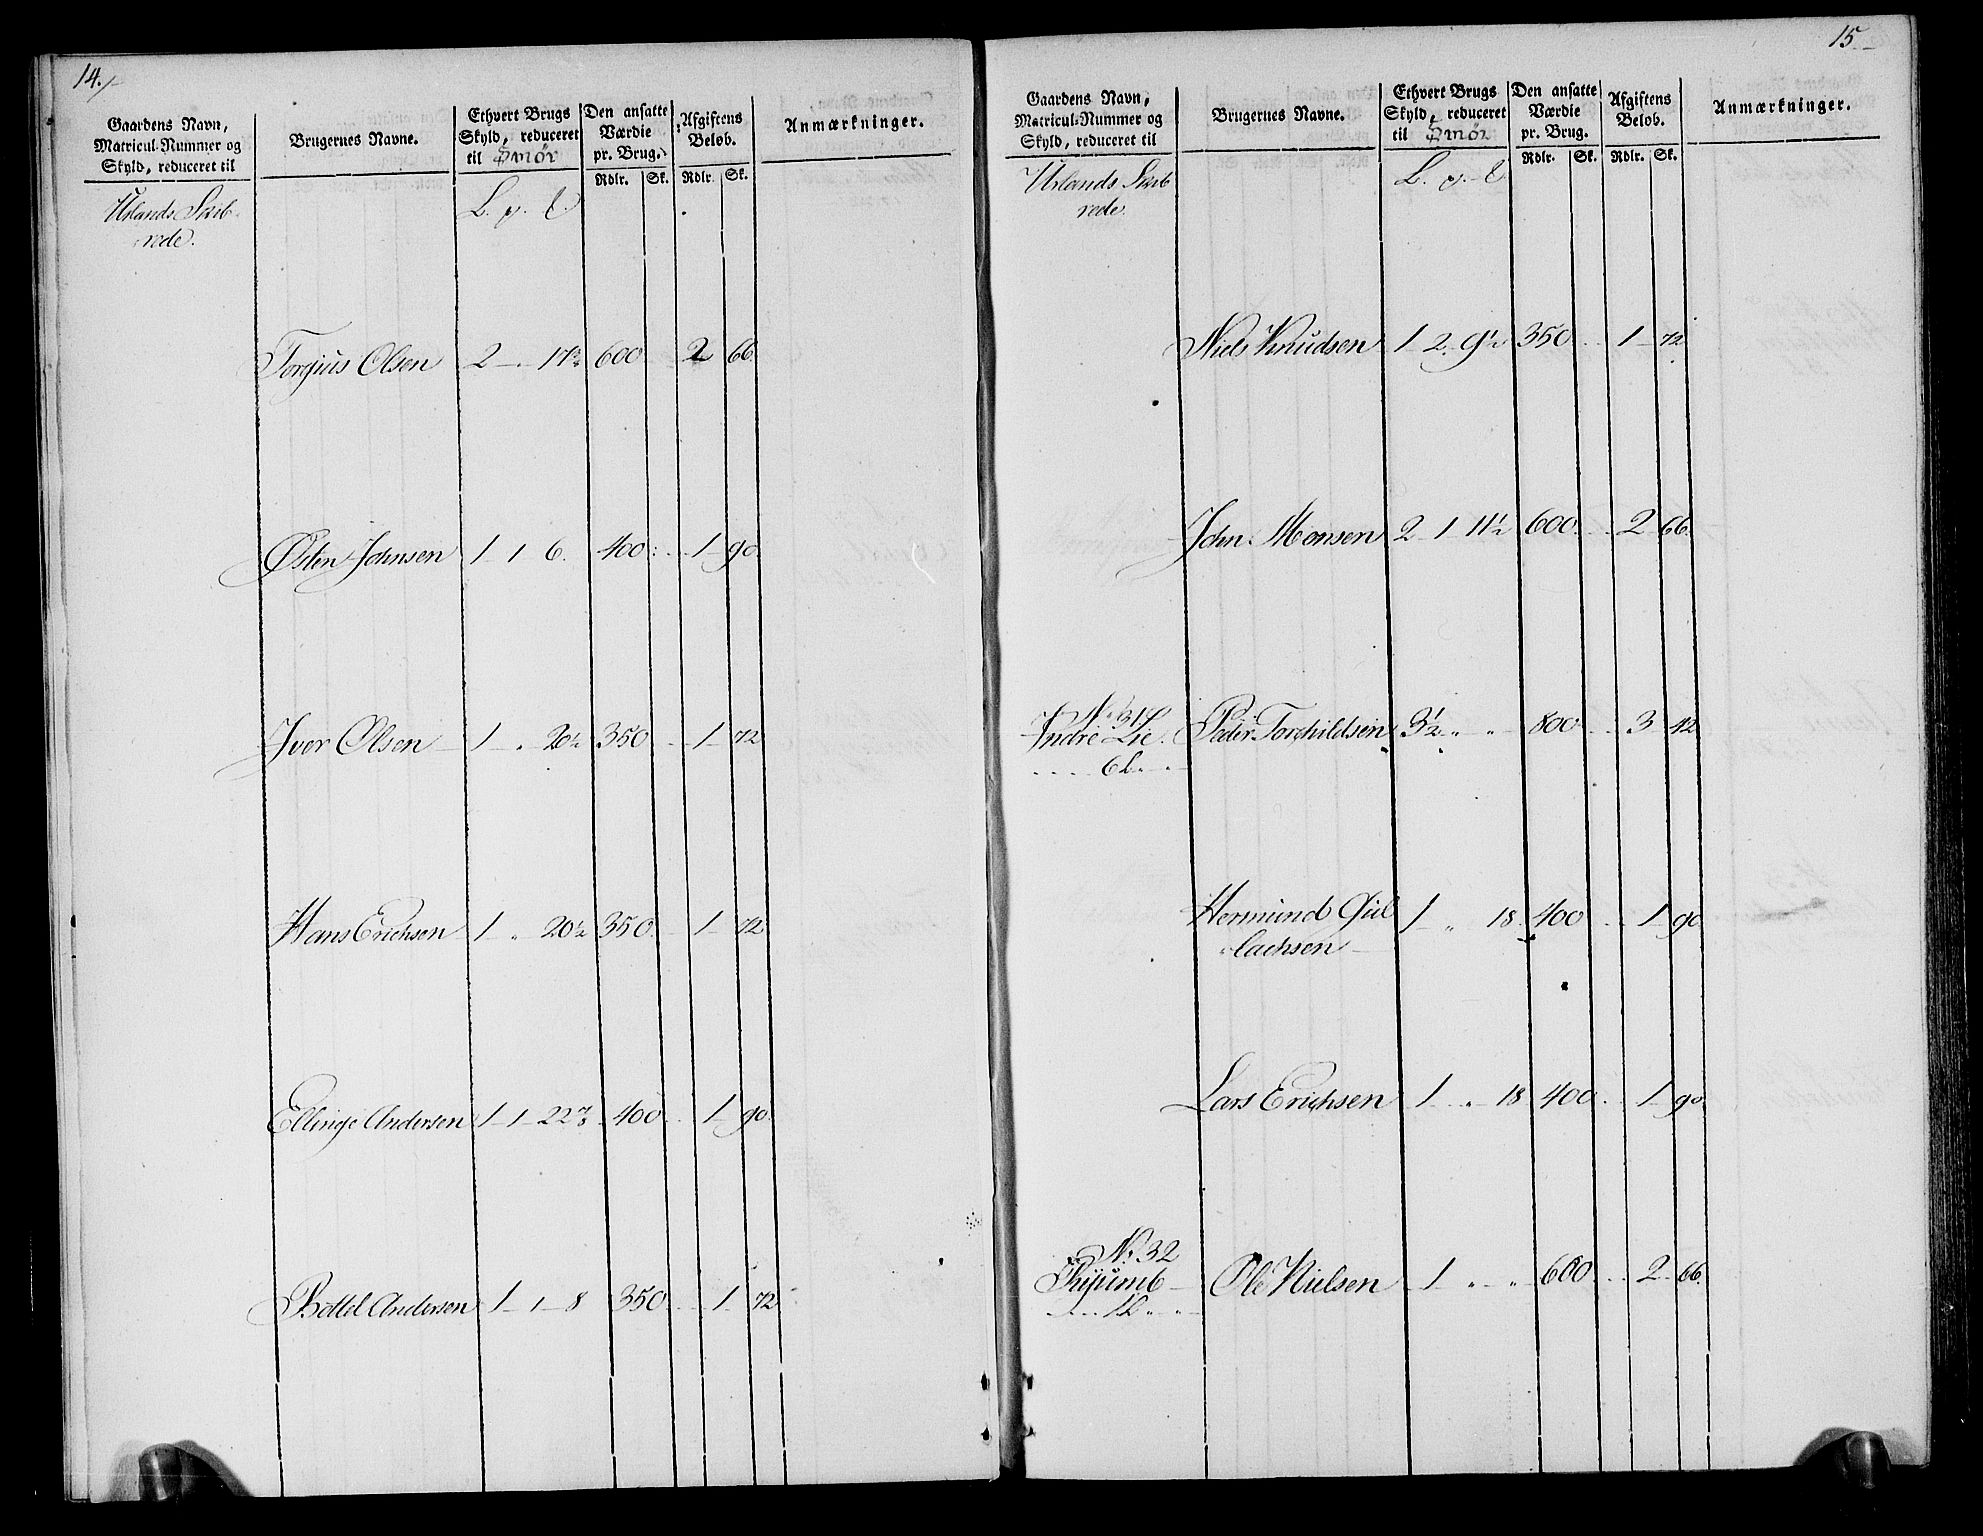 14.
Gaardens Navn, Matricul-Nummer og Skyld, reduceret til
Brugernes Navne.
Ethvert Brugs Skyld, reduceret til Smør
Den ansatte Værdie pr. Brug.
Afgiftens Beløb.
Anmærkninger.
Rdlr. Sk. Rdlr. Sk.
Urlands Skib-
rede.
Torgius Olsen 2 - " - 17 600 2 66.
Østen Johnsen 1 - 1 6. 400 1 90.
Iver Olsen 1 - " 20½ 350 1 72
Hans Erichsen 1 - " - 20½ 350 1 72
Ellinge Andersen 1 - 1 - 22 400 1 90.
Bottel Andersen 1 - 1 - 8 350 1 72
15
Gaardens Navn, Matricul-Nummer og Skyld, reduceret til
Brugernes Navne.
Ethvert Brugs Skyld, reduceret til Smør
Den ansatte Værdie pr. Brug.
Afgiftens Beløb.
Anmærkninger.
Rdlr. Sk. Rdlr. Sk.
Urlands Skib-
rede.
Niels Knudsen 1 - 2. 9½ 350 1 72
John Monsen 2 - 1 11½ 600 2 66.
No. 31
Indre Lie. Peder Torchildsen 3½ " " 800 3 42
6 L
Hermund Gul- 1 - " 18. 400 1 90
lachsen
Lars Erichsen 1 - " 18 400 1 90
No. 32
Ole Nielsen 1 " " 600 2 66.
1 L